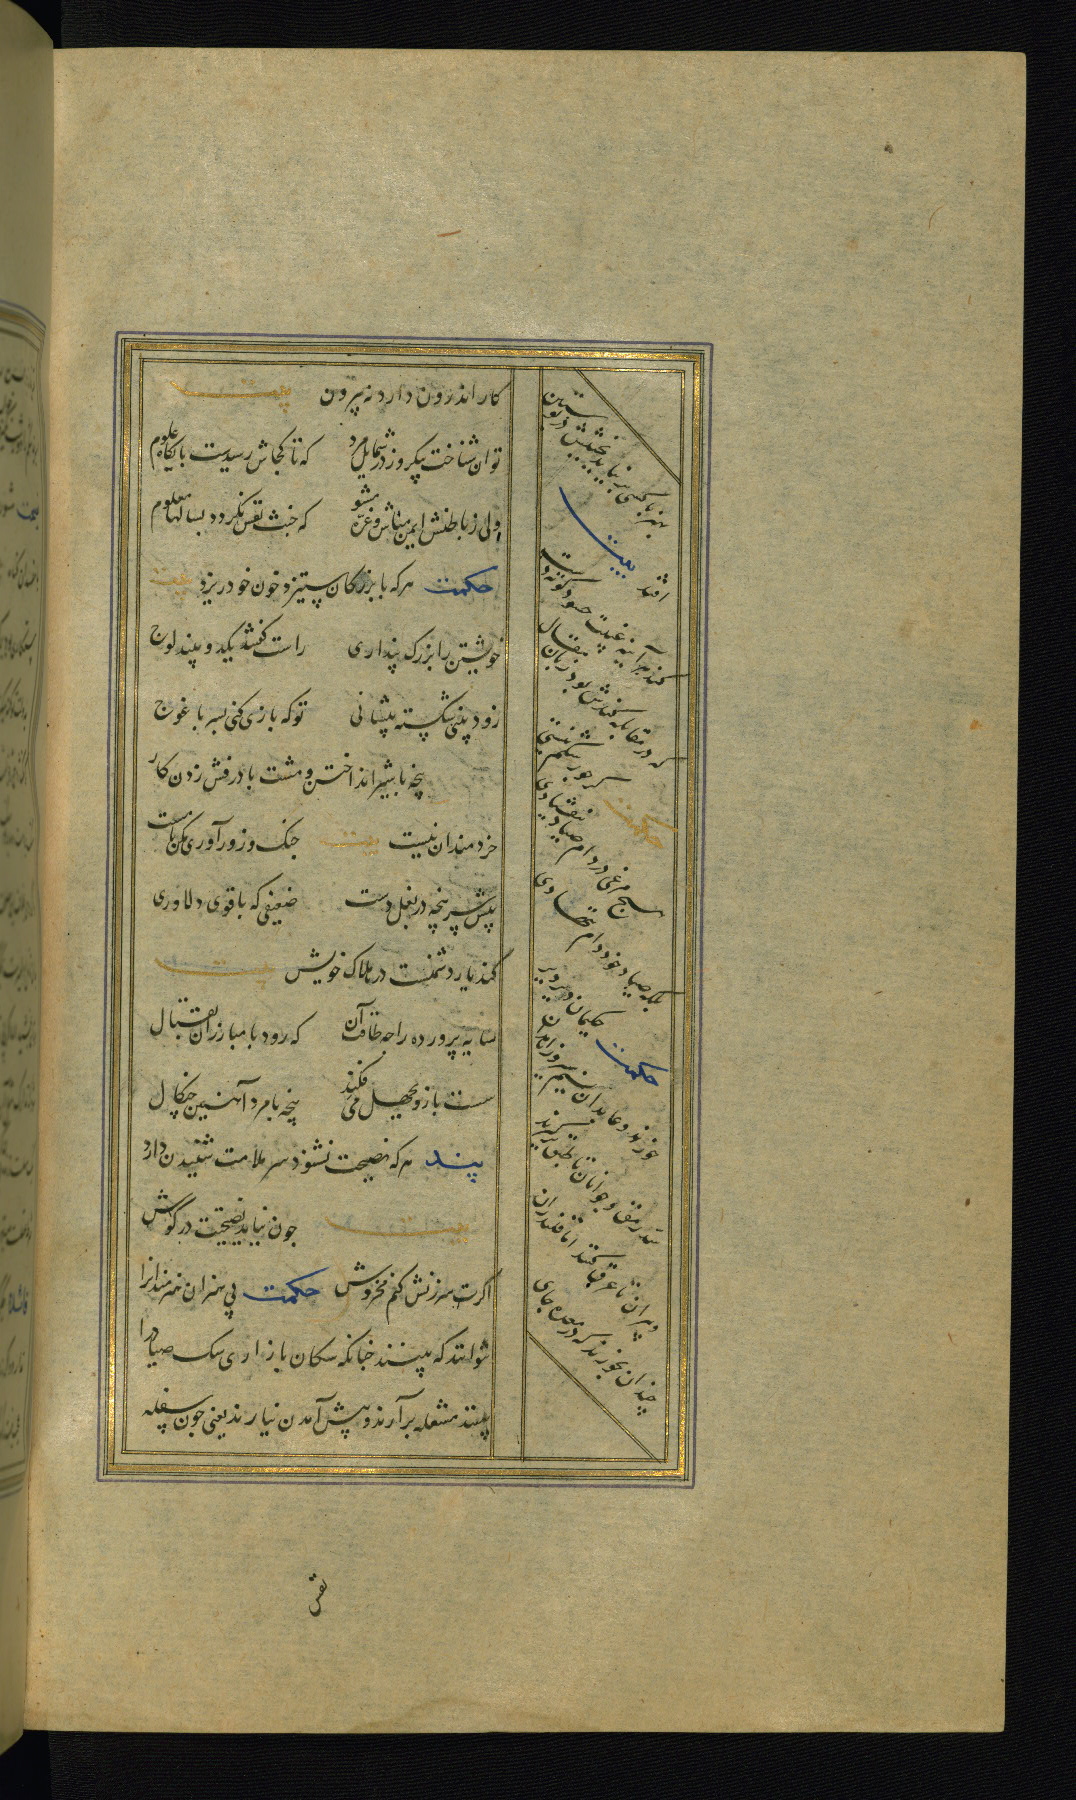 کار اندرون دارد نه بیرون بیت
توان شناخت بیکروز در شمایل مرد که تا کجاش رسیدست بایکاه علوم
ولی ز باطنش ایمن مباش و غرّه مشو که خبث نفس نکردد بسالها معلوم
حکمت هر که با بزرکان ستیزد خون خود ریزد بیت
خویشتن را بزرک پنداری راست کفتند یک دو بیند لوج
زود بینی شکسته پیشانی تو که بازی کنی بسر با غوج
پنجه با شیر انداختن و مشت با درفش زدن کار
خردمندان نیست بیت جنک و زورآوری مکن با مست
پیش سرپنجه در بغل دست ضعیفی که با قوی دلاوری
کند یار دشمنست در هلاک خویش بیت
سایه پرورده را چه طاقت آن که رود با مبارزان بقتال
سست بازو بجهل می فکند پنجه با مرد آهنین چنکال
پند هر که نصیحت نشنود سر ملامت شنیدن دارد
بیت چون نیاید نصیحتت در کوش
اکرت سرزنش کنم مخروش حکمت بی هنران هنرمندانرا
نتوانند که بینند چنانکه سکان بازاری سک صیاد را
بینند مشغله برآرند و پیش آمدن نیارند یعنی چون سفله
بهنر با کسی برنیاید بخبثش در پوستین
افتد بیت
کند هر آینه غیبت حسود کوته دست
که در مقابله کنکش بود زبان مقال
حکمت کر جور شکم نیستی
هیچ مرغی در دام صیاد نیفتادی
بلکه صیاد خود دام ننهادی
حکمت حکیمان دیر دیر
خورند و عابدان نیم سیر و زاهدان
سد رمق و جوانان تا طبق برگیرند
و پیران تا عرق کنند اما قلندران
چندان بخورند که در معده جای
نفس